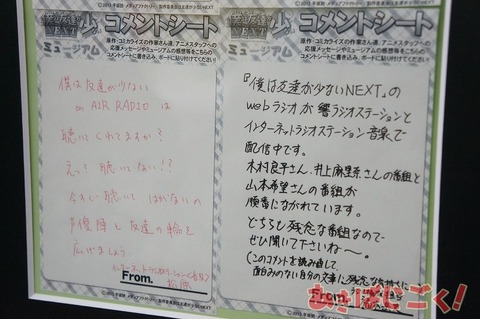 僕は友達が少ない
NEXT
コメントシート
ミュージアム
原作・コミカライズの作家さん達、アニメスタッフへの
応援メッセージやミュージアムの感想等をこちらの
コメントシートに書き込み、ボードに貼り付けてください!
僕は友達が少ない
on AIR RADIO は
聴いてくれてますか?
えっ?聴いてない!?
声優陣と友達の輪を
広げましょう
From.
コメントシート
ミュージアム
原作・コミカライズの作家さん達、アニメスタッフへの
応援メッセージやミュージアムの感想等をこちらの
コメントシートに書き込み、ボードに貼り付けてください!
『僕は友達が少ないNEXT』の
webラジオが響ラジオステーションと
インターネットラジオステーション音泉で
配信中です。
木村良平さん、井上麻里奈さんの番組と
山本希望さんの番組が
順番にながれています。
どちらも残念な番組なので
ぜひ聞いて下さいね〜。
(このコメントを読み直して
面白みのない自分の文章に残念な気持ちに
From.